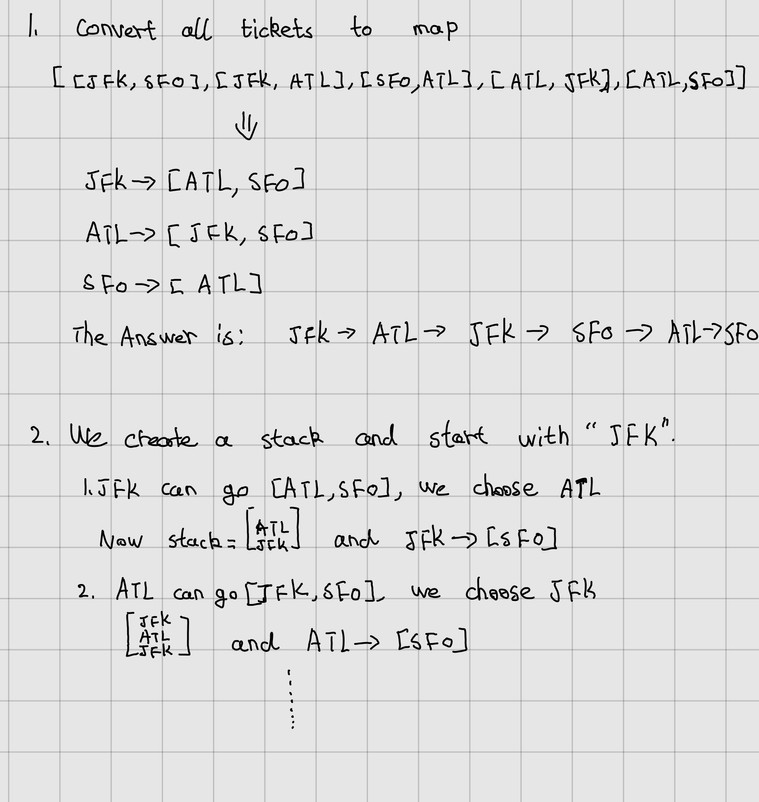 1. Convert all tickets to map
[[JFK, SFO], [JFK, ATL], [SFO, ATL], [ATL, JFK], [ATL, SFO]]
⇓
JFK → [ATL, SFO]
ATL → [JFK, SFO]
SFO → [ATL]
The Answer is: JFK → ATL → JFK → SFO → ATL → SFO
2. We create a stack and start with "JFK".
1. JFK can go [ATL, SFO], we choose ATL
Now stack = [ATL JFK] and JFK → [SFO]
2. ATL can go [JFK, SFO], we choose JFK
[JFK ATL JFK] and ATL → [SFO]